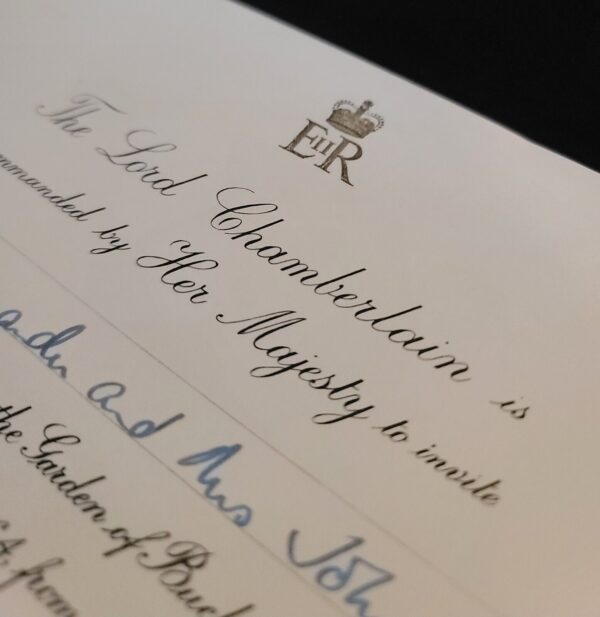 EIIR
The Lord Chamberlain is
mmanded by Her Majesty to invite
and Mrs Joh
the Garden of Buck
from